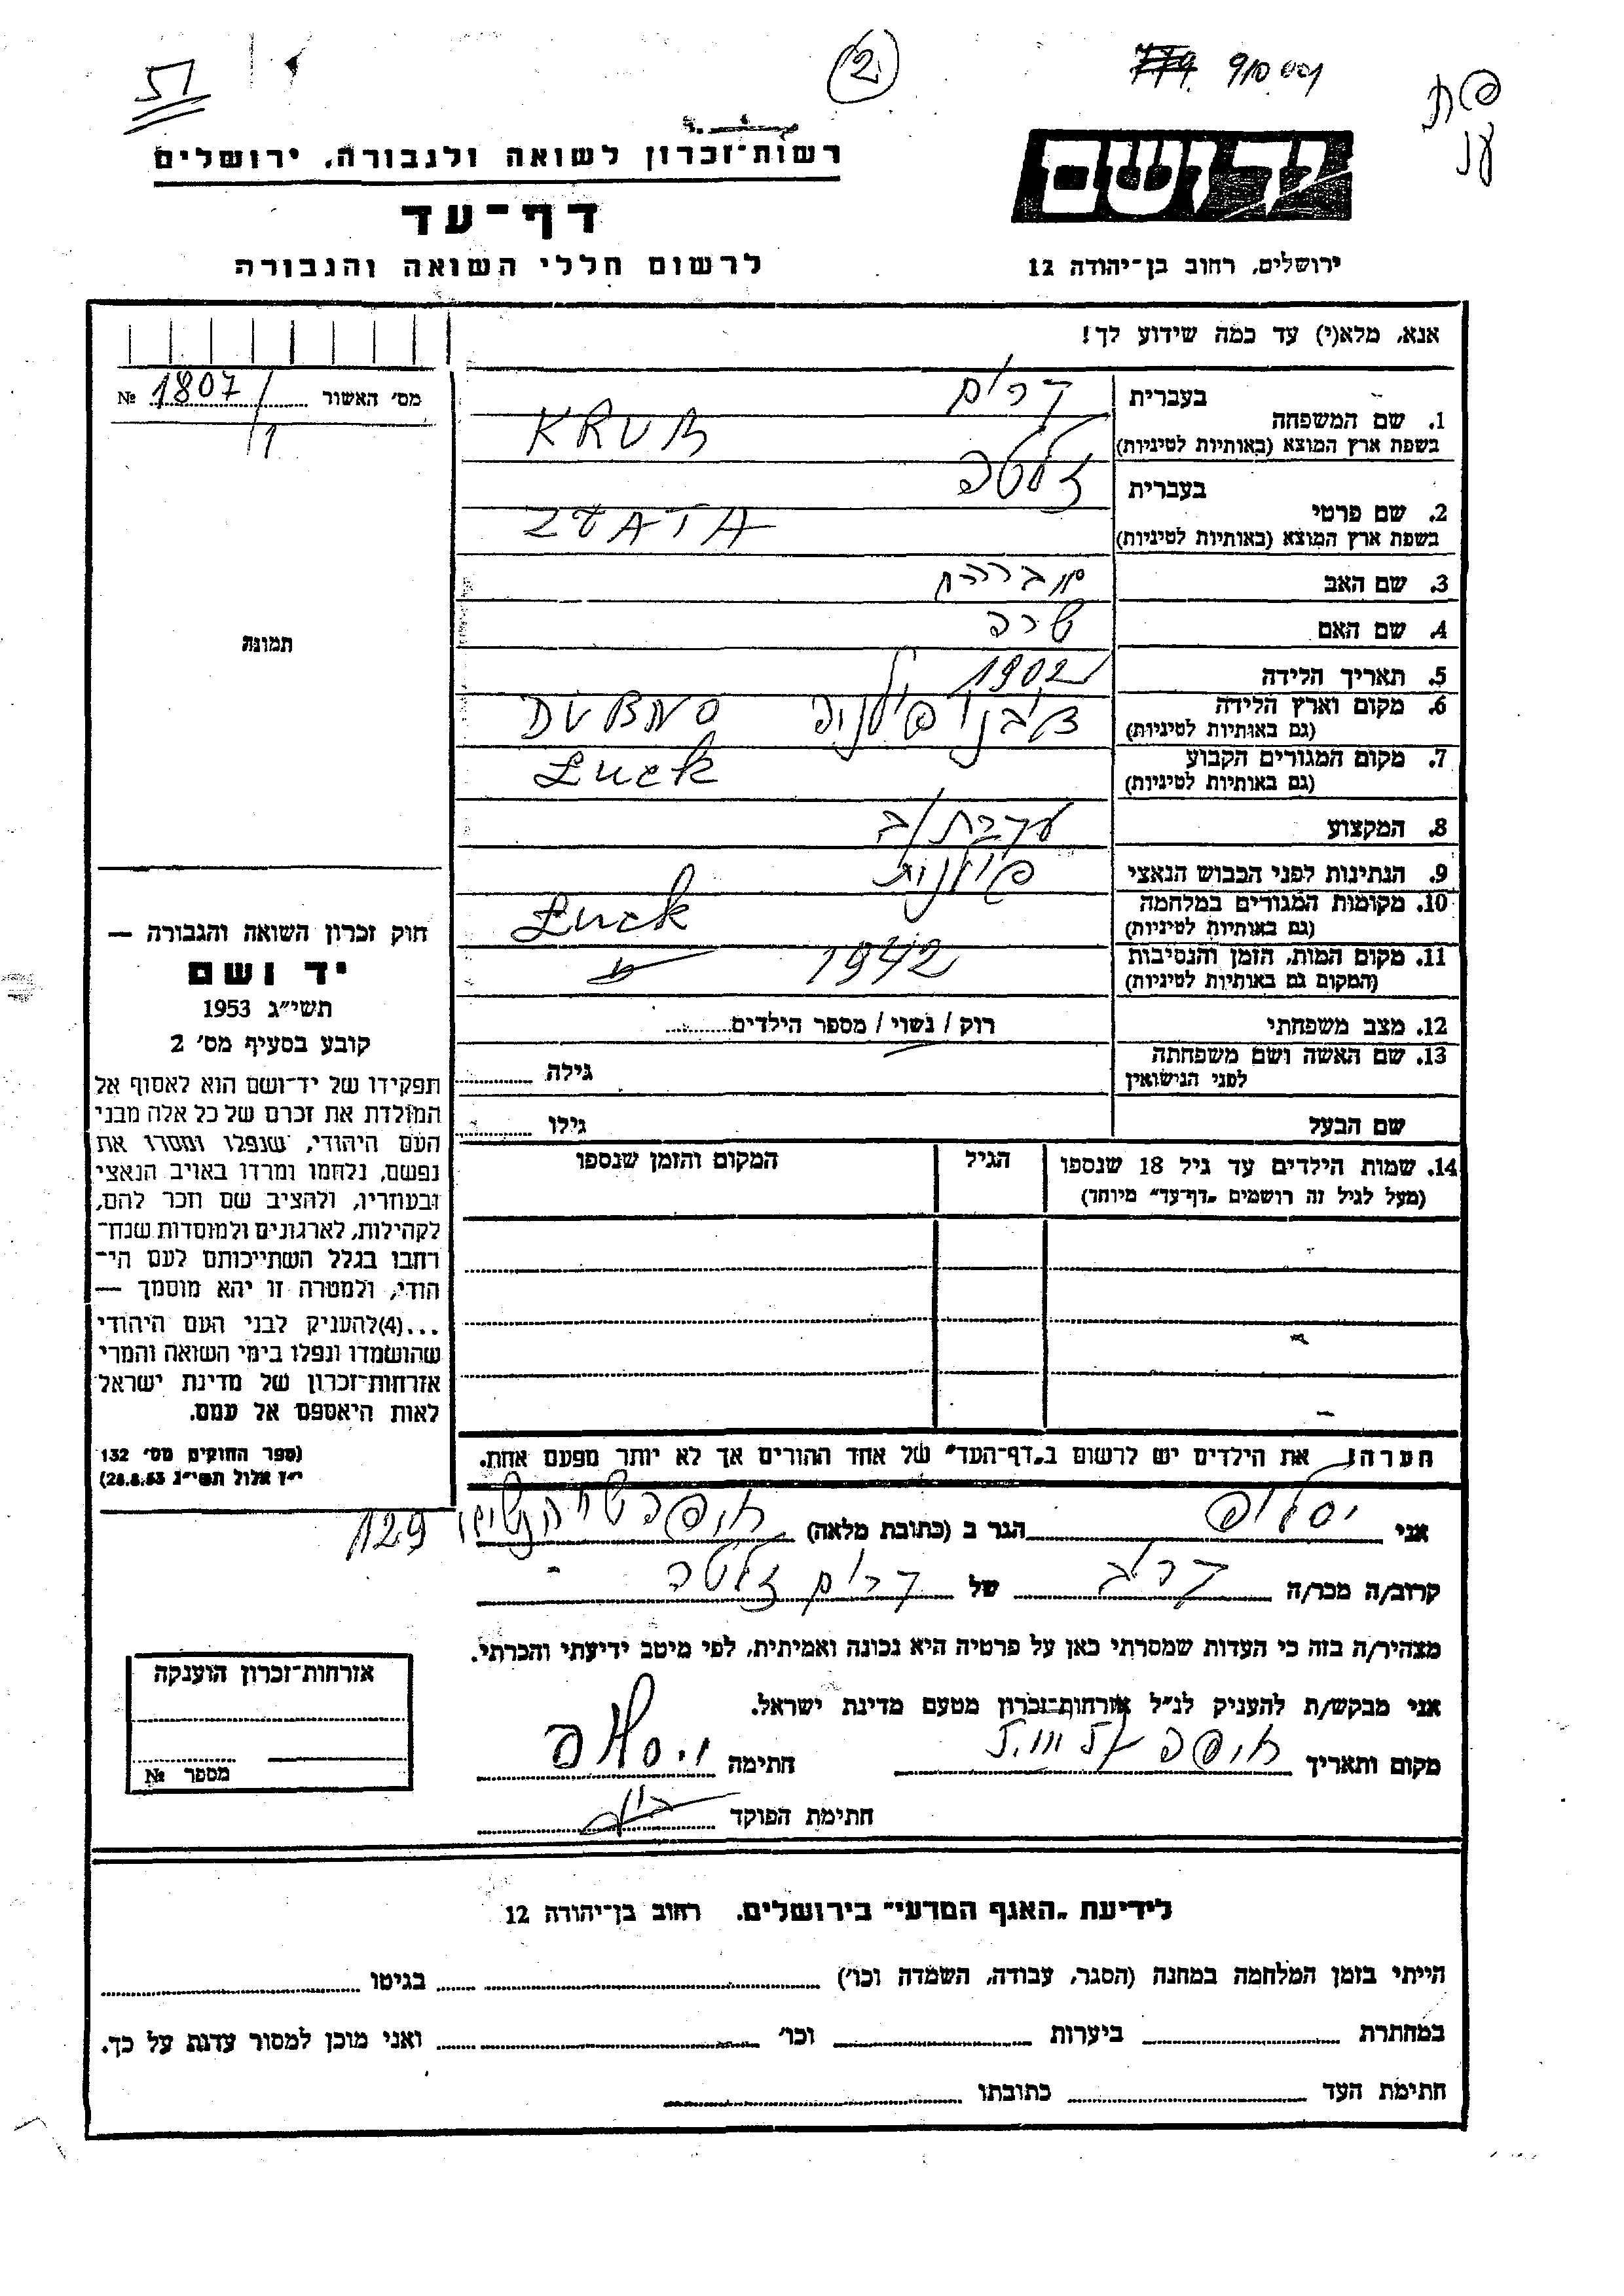 (2)
910
רשות־זכרון לשואה ולגבורה, ירושלים
יד ושם
דף־עד
לרשום חללי השואה והגבורה
ירושלים, רחוב בן־יהודה 12
אנא, מלא(י) עד כמה שידוע לך!
מס׳ האשור № 1807/1
1. שם המשפחה
בעברית
בשפת ארץ המוצא (באותיות לטיניות) KRUB
2. שם פרטי
בעברית זלטה
בשפת ארץ המוצא (באותיות לטיניות) ZŁATA
3. שם האב אברהם
4. שם האם שרה
5. תאריך הלידה 1902
6. מקום וארץ הלידה (גם באותיות לטיניות) דובנו פולניה DUBNO
7. מקום המגורים הקבוע (גם באותיות לטיניות) Łuck
8. המקצוע עקרת/ב
9. הנתינות לפני הכבוש הנאצי פולנית
10. מקומות המגורים במלחמה (גם באותיות לטיניות) Łuck
11. מקום המות, הזמן והנסיבות (המקום גם באותיות לטיניות) 1942
12. מצב משפחתי רוק / נשוי / מספר הילדים
13. שם האשה ושם משפחתה לפני הנישואין גילה
שם הבעל גילו
14. שמות הילדים עד גיל 18 שנספו
(מעל לגיל זה רושמים „דף־עד״ מיוחד)
הגיל
המקום והזמן שנספו
הערה: את הילדים יש לרשום ב„דף־העד״ של אחד ההורים אך לא יותר מפעם אחת.
תמונה
חוק זכרון השואה והגבורה —
יד ושם
תשי״ג 1953
קובע בסעיף מס׳ 2
תפקידו של יד־ושם הוא לאסוף אל
המולדת את זכרם של כל אלה מבני
העם היהודי, שנפלו ומסרו את
נפשם, נלחמו ומרדו באויב הנאצי
ובעוזריו, ולהציב שם וזכר להם,
לקהילות, לארגונים ולמוסדות שנח־
רחבו בגלל השתייכותם לעם הי־
הודי, ולמטרה זו יהא מוסמך —
...(4)להעניק לבני העם היהודי
שהושמדו ונפלו בימי השואה והמרי
אזרחות־זכרון של מדינת ישראל
לאות היאספם אל עמם.
(ספר החוקים מס׳ 132
י״ז אלול תשי״ג 28.8.53)
אני הגר ב (כתובת מלאה) חיפה 129
קרוב/ה מכר/ה קרוב של זלטה
מצהיר/ה בזה כי העדות שמסרתי כאן על פרטיה היא נכונה ואמיתית, לפי מיטב ידיעתי והכרתי.
אני מבקש/ת להעניק לנ״ל אזרחות־זכרון מטעם מדינת ישראל.
מקום ותאריך חיפה חתימה
חתימת הפוקד
אזרחות־זכרון הוענקה
מספר №
לידיעת „האגף המדעי״ בירושלים, רחוב בן־יהודה 12
הייתי בזמן המלחמה במחנה (הסגר, עבודה, השמדה וכו׳) בגיטו
במחתרת ביערות וכו׳ ואני מוכן למסור עדות על כך.
חתימת העד כתובתו